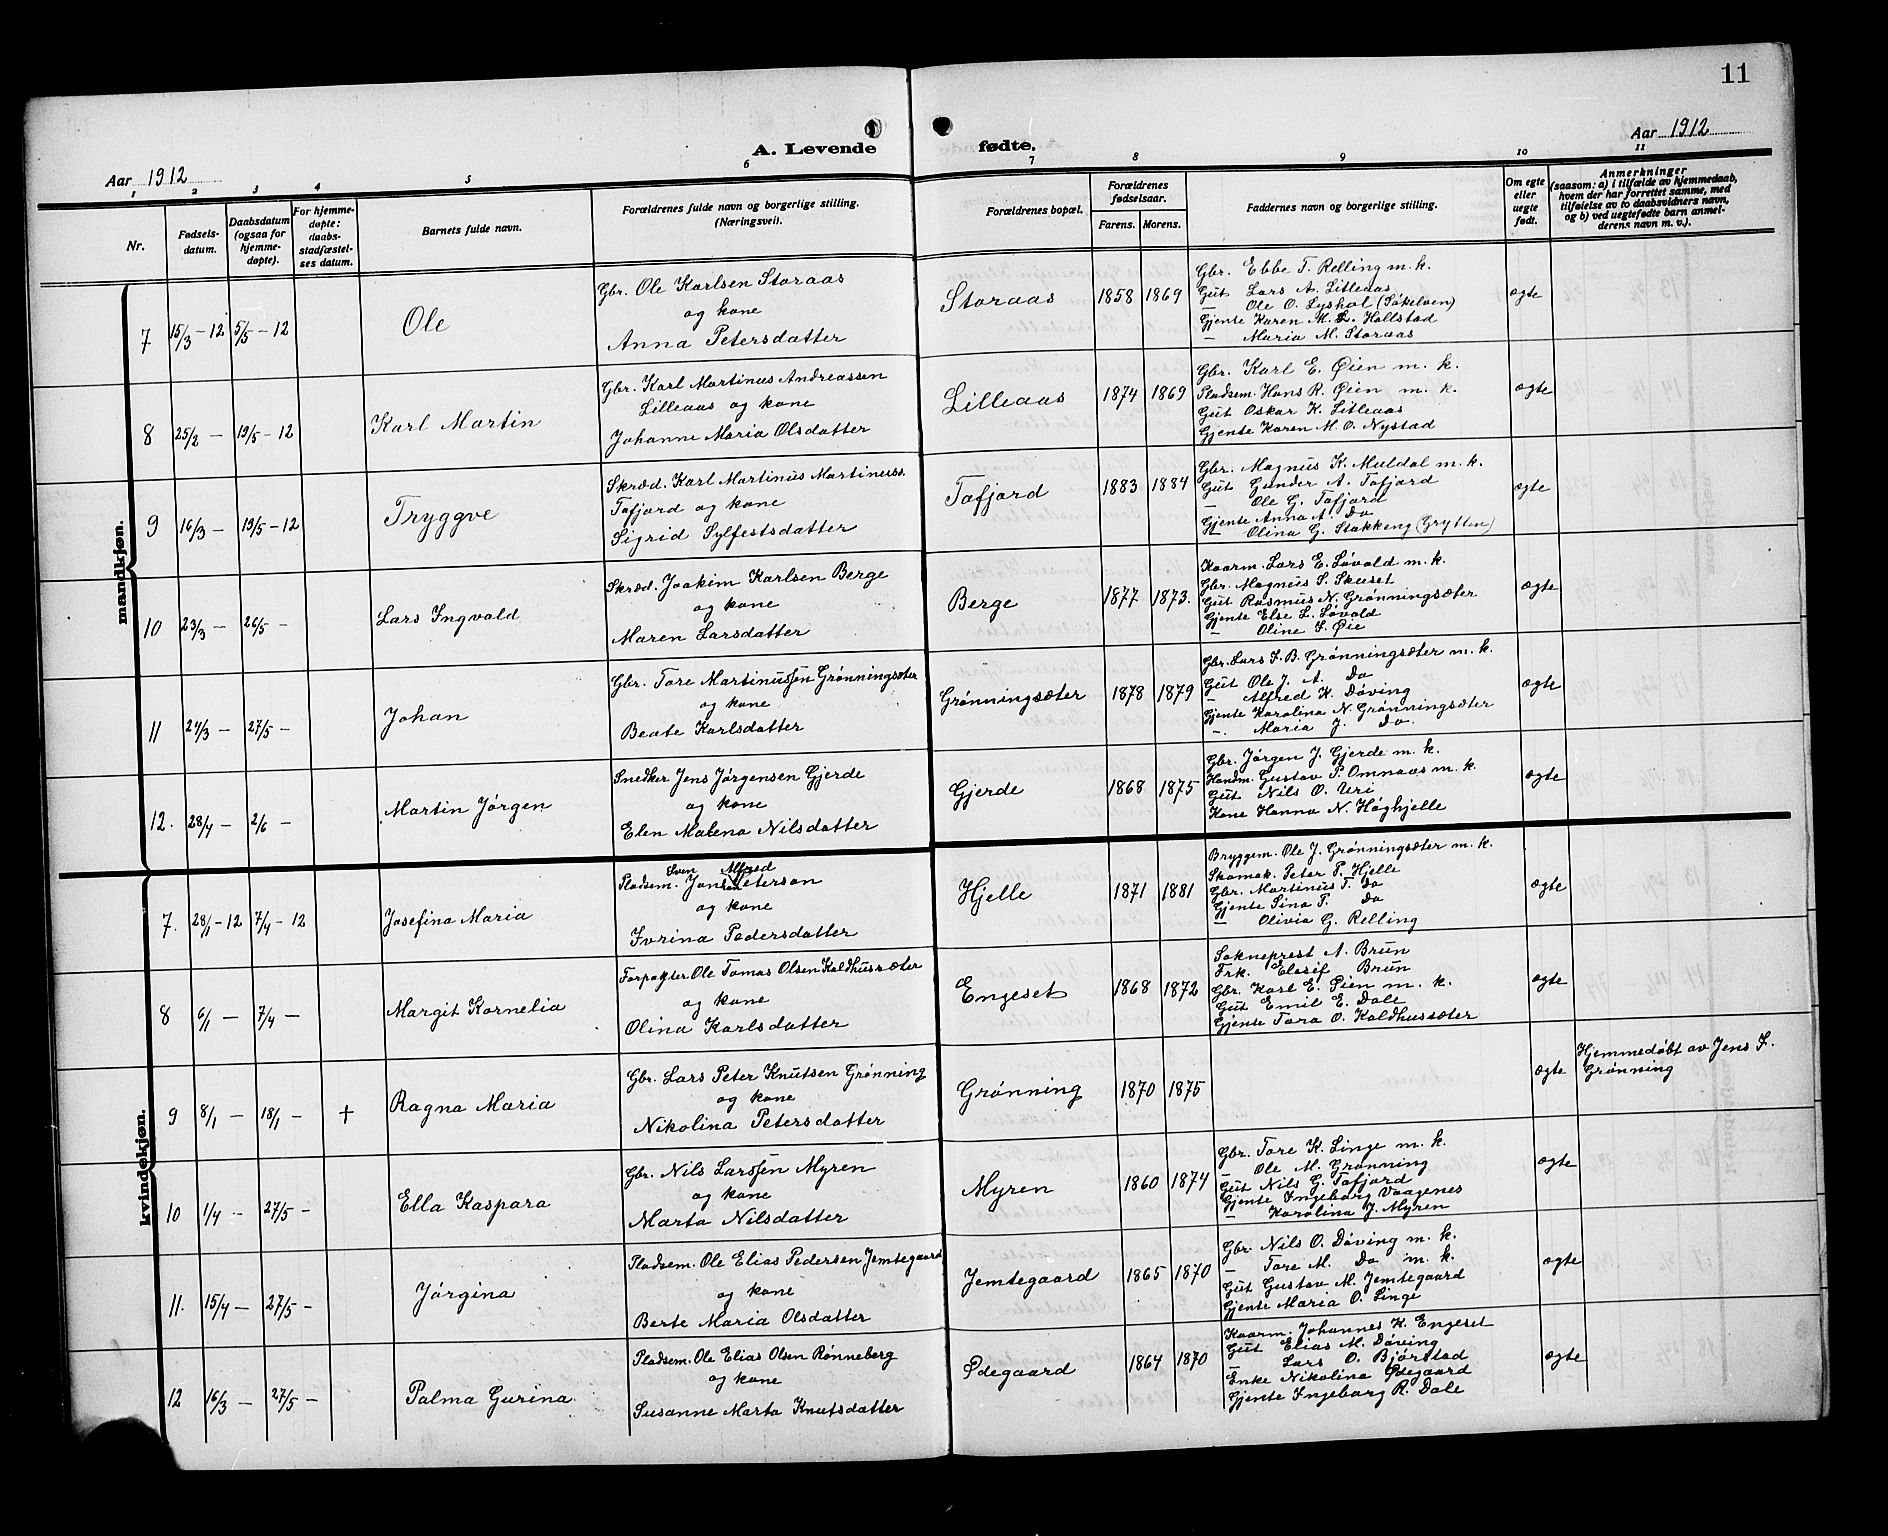 11
Aar 1912
A. Levende fødte.
Aar 1912
1 2 3 4 5 6 7 8 9 10 11
Nr.
Fødsels-
datum.
Daabsdatum
(ogsaa for
hjemme-
døpte).
For hjemme-
døpte:
daabs-
stadfæstel-
ses datum.
Barnets fulde navn.
Forældrenes fulde navn og borgerlige stilling.
(Næringsvei).
Forældrenes bopæl.
Forældrenes
fødselsaar.
Farens. Morens.
Faddernes navn og borgerlige stilling.
Om egte
eller
uegte
født.
Anmerkninger
(saasom: a) i tilfælde av hjemmedaab,
hvem der har forrettet samme, med
tilføielse av to daabsvidners navn,
og b) ved uegtefødte barn anmel-
derens navn m. v.).
mandkjøn.
7 15/3 - 12 5/5 - 12 Ole
Gbr. Ole Karlsen Storaas
og kone
Anna Petersdatter
Storaas 1858 1869
Gbr. Ebbe T. Relling m. k.
Gut Lars A. Lilleaas
— Ole O. Lyshol (Søkelven)
Gjente Karen M. L. Hallstad
— Maria M. Storaas
ægte
8 25/2 — 19/5 - 12 Karl Martin
Gbr. Karl Martinus Andreassen
Lilleaas og kone
Johanne Maria Olsdatter
Lilleaas 1874 1869
Gbr. Karl E. Øien m. k.
Pladsem. Hans R. Øien m. k.
Gut Oskar K. Lilleaas
Gjente Karen M. O. Nystad
ægte
9 16/3 — 19/5 - 12 Tryggve
Skræd. Karl Martinus Martinuss.
Tafjord og kone
Sigrid Sylfestsdatter
Tafjord 1883 1884
Gbr. Magnus K. Muldal m. k.
Gut Gunder A. Tafjord
— Ole G. Tafjord
Gjente Anna A. Do
— Olina G. Stakkeng (Grytten)
ægte
10 23/3 — 26/5 — Lars Ingvald
Skræd. Joakim Karlsen Berge
og kone
Maren Larsdatter
Berge 1877 1873.
Kaarm. Lars E. Løvold m. k.
Gbr. Magnus S. Skuset
Gut Rasmus N. Grønningsæter
Gjente Else L. Løvold
— Oline J. Øie
ægte
11 24/3 — 27/5 — Johan
Gbr. Tore Martinussen Grønningsæter
og kone
Beate Karlsdatter
Grønningsæter 1878 1879
Gbr. Lars J. B. Grønningsæter m. k.
Gut Ole J. A. Do
— Alfred K. Døving
Gjente Karolina N. Grønningsæter
— Maria J. Do
ægte
12. 28/4 — 2/6 — Martin Jørgen
Snedker Jens Jørgensen Gjerde
og kone
Elen Malena Nilsdatter
Gjerde 1868 1875
Gbr. Jørgen J. Gjerde m. k.
Handm. Gustav P. Omnaas m. k.
Gut Nils O. Uri
Kone Hanna N. Høghjelle
ægte
kvindekjøn.
7. 28/1 - 12 7/4 - 12 Josefina Maria
Sven Alfred
Pladsem. Peterson
og kone
Ivrina Pedersdatter
Hjelle 1871 1881
Bryggem. Ole J. Grønningsæter m. k.
Skomak. Peter P. Hjelle
Gbr. Martinus T. Do
Gjente Sina T. Do
— Olivia G. Relling
ægte
8 6/1 — 7/4 — Margit Kornelia
Forpagter Ole Tomas Olsen Kaldhussæter
og kone
Olina Karlsdatter
Engeset 1868 1872
Sokneprest A. Brun
Frk. Elesif Brun
Gbr. Karl E. Øien m. k.
Gut Emil E. Dale
Gjente Tora O. Kaldhussæter
ægte
9 8/1 — 18/1 — + Ragna Maria
Gbr. Lars Peter Knutsen Grønning
og kone
Nikolina Petersdatter
Grønning 1870 1875
ægte
Hjemmedøbt av Jens I.
Grønning
10 1/4 — 27/5 — Ella Kaspara
Gbr. Nils Larssen Myren
og kone
Marta Nilsdatter
Myren 1860 1874
Gbr. Tore K. Linge m. k.
— Ole M. Grønning
Gut Nils G. Tafjord
Gjente Ingeborg Vaagenes
— Karolina J. Myren
ægte
11. 15/4 — 27/5 — Jørgina
Pladsem. Ole Elias Pedersen Jemtegaard
og kone
Berte Maria Olsdatter
Jemtegaard 1865 1870
Gbr. Nils O. Døving m. k.
— Tore M. Do m. k.
Gut Gustav M. Jemtegaard
Gjente Maria O. Linge
ægte
12 16/3 — 27/5 — Palma Gurina
Pladsem. Ole Elias Olsen Rønneberg
og kone
Susanne Marta Knutsdatter
Ødegaard 1864 1870
Kaarm. Johannes K. Engeset
Gut Elias M. Døving
— Lars O. Bjørstad
Enke Nikolina Ødegaard
Gjente Ingeborg R. Dale
ægte